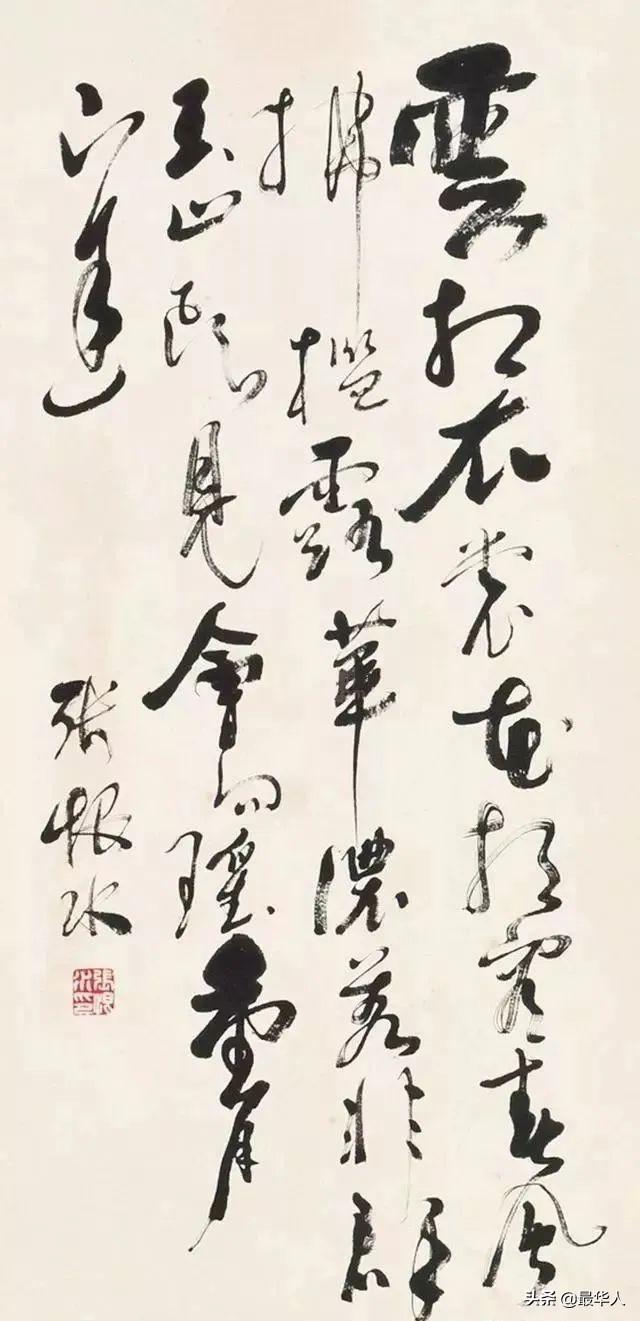 雲想衣裳花想容春風
拂檻露華濃若非群
玉山頭見會向瑤臺月
下逢
張恨水
張恨水印
头条 @最华人